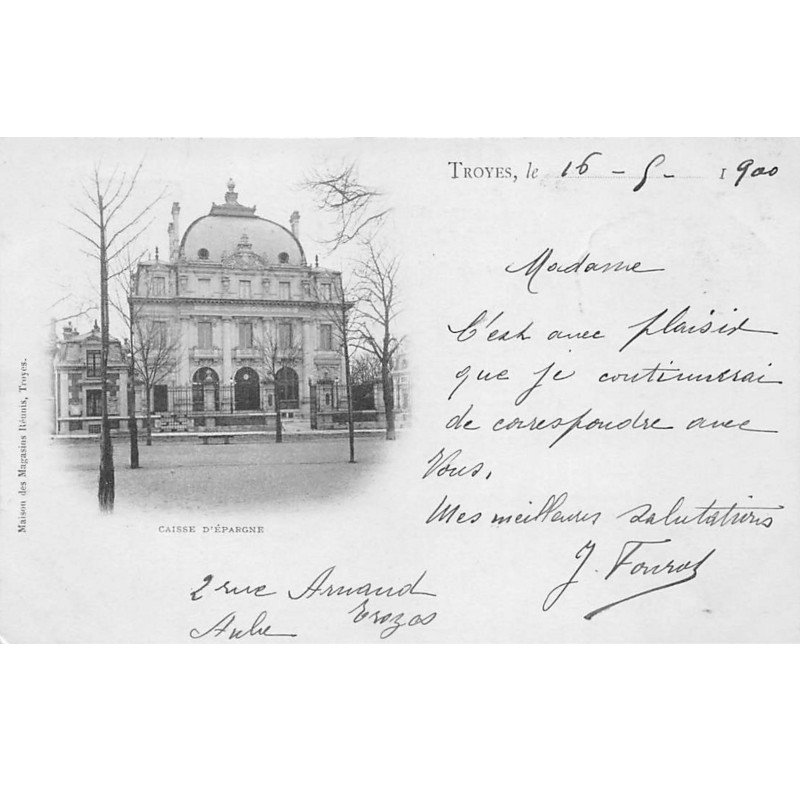 TROYES, le 16 - 5 - 1900
Madame
C'est avec plaisir
que je continuerai
de correspondre avec
Vous,
Mes meilleures salutations
J.
2 rue Arnaud
Troyes
Aube
CAISSE D'ÉPARGNE
Maison des Magasins Réunis, Troyes.